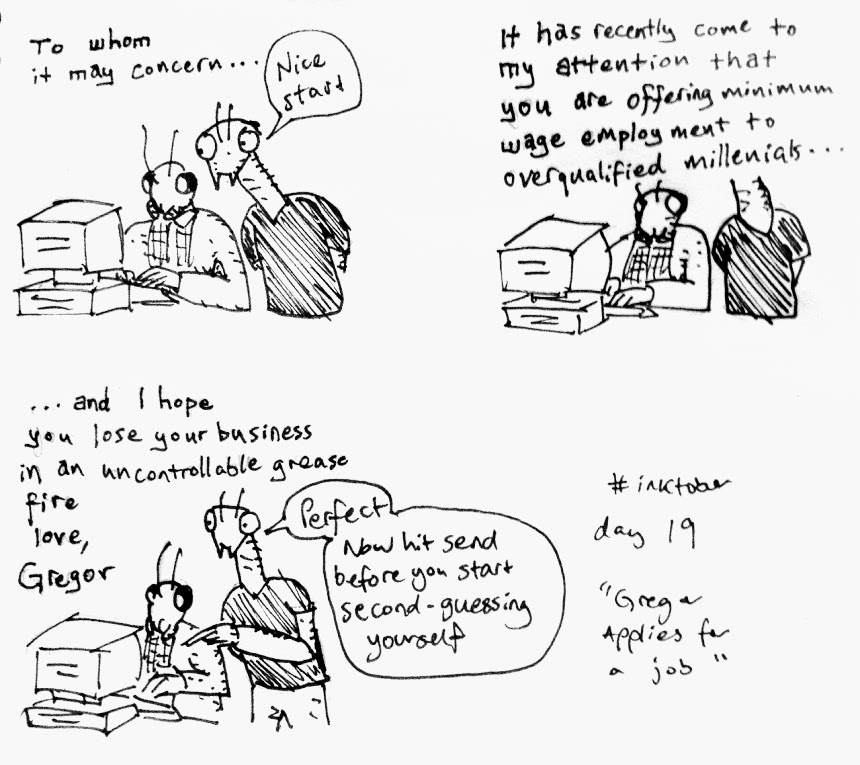 To whom
it may concern...
Nice
start
It has recently come to
my attention that
you are offering minimum
wage employment to
overqualified millenials...
... and I hope
you lose your business
in an uncontrollable grease
fire
love,
Gregor
Perfect
Now hit send
before you start
second-guessing
yourself
#inktober
day 19
"Gregor
Applies for
a job"